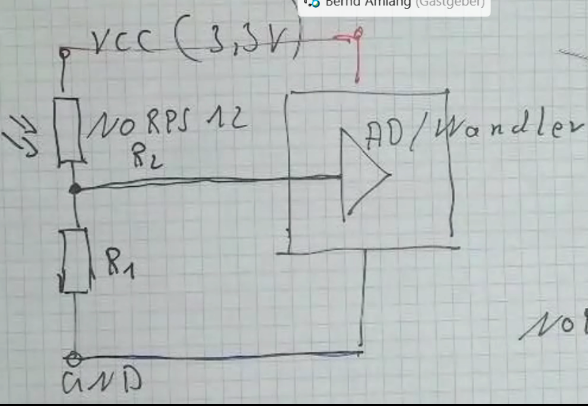 Bernd Amlang (Gastgeber)
VCC (3,3V)
NORPS 12
R2
AD/Wandler
R1
GND